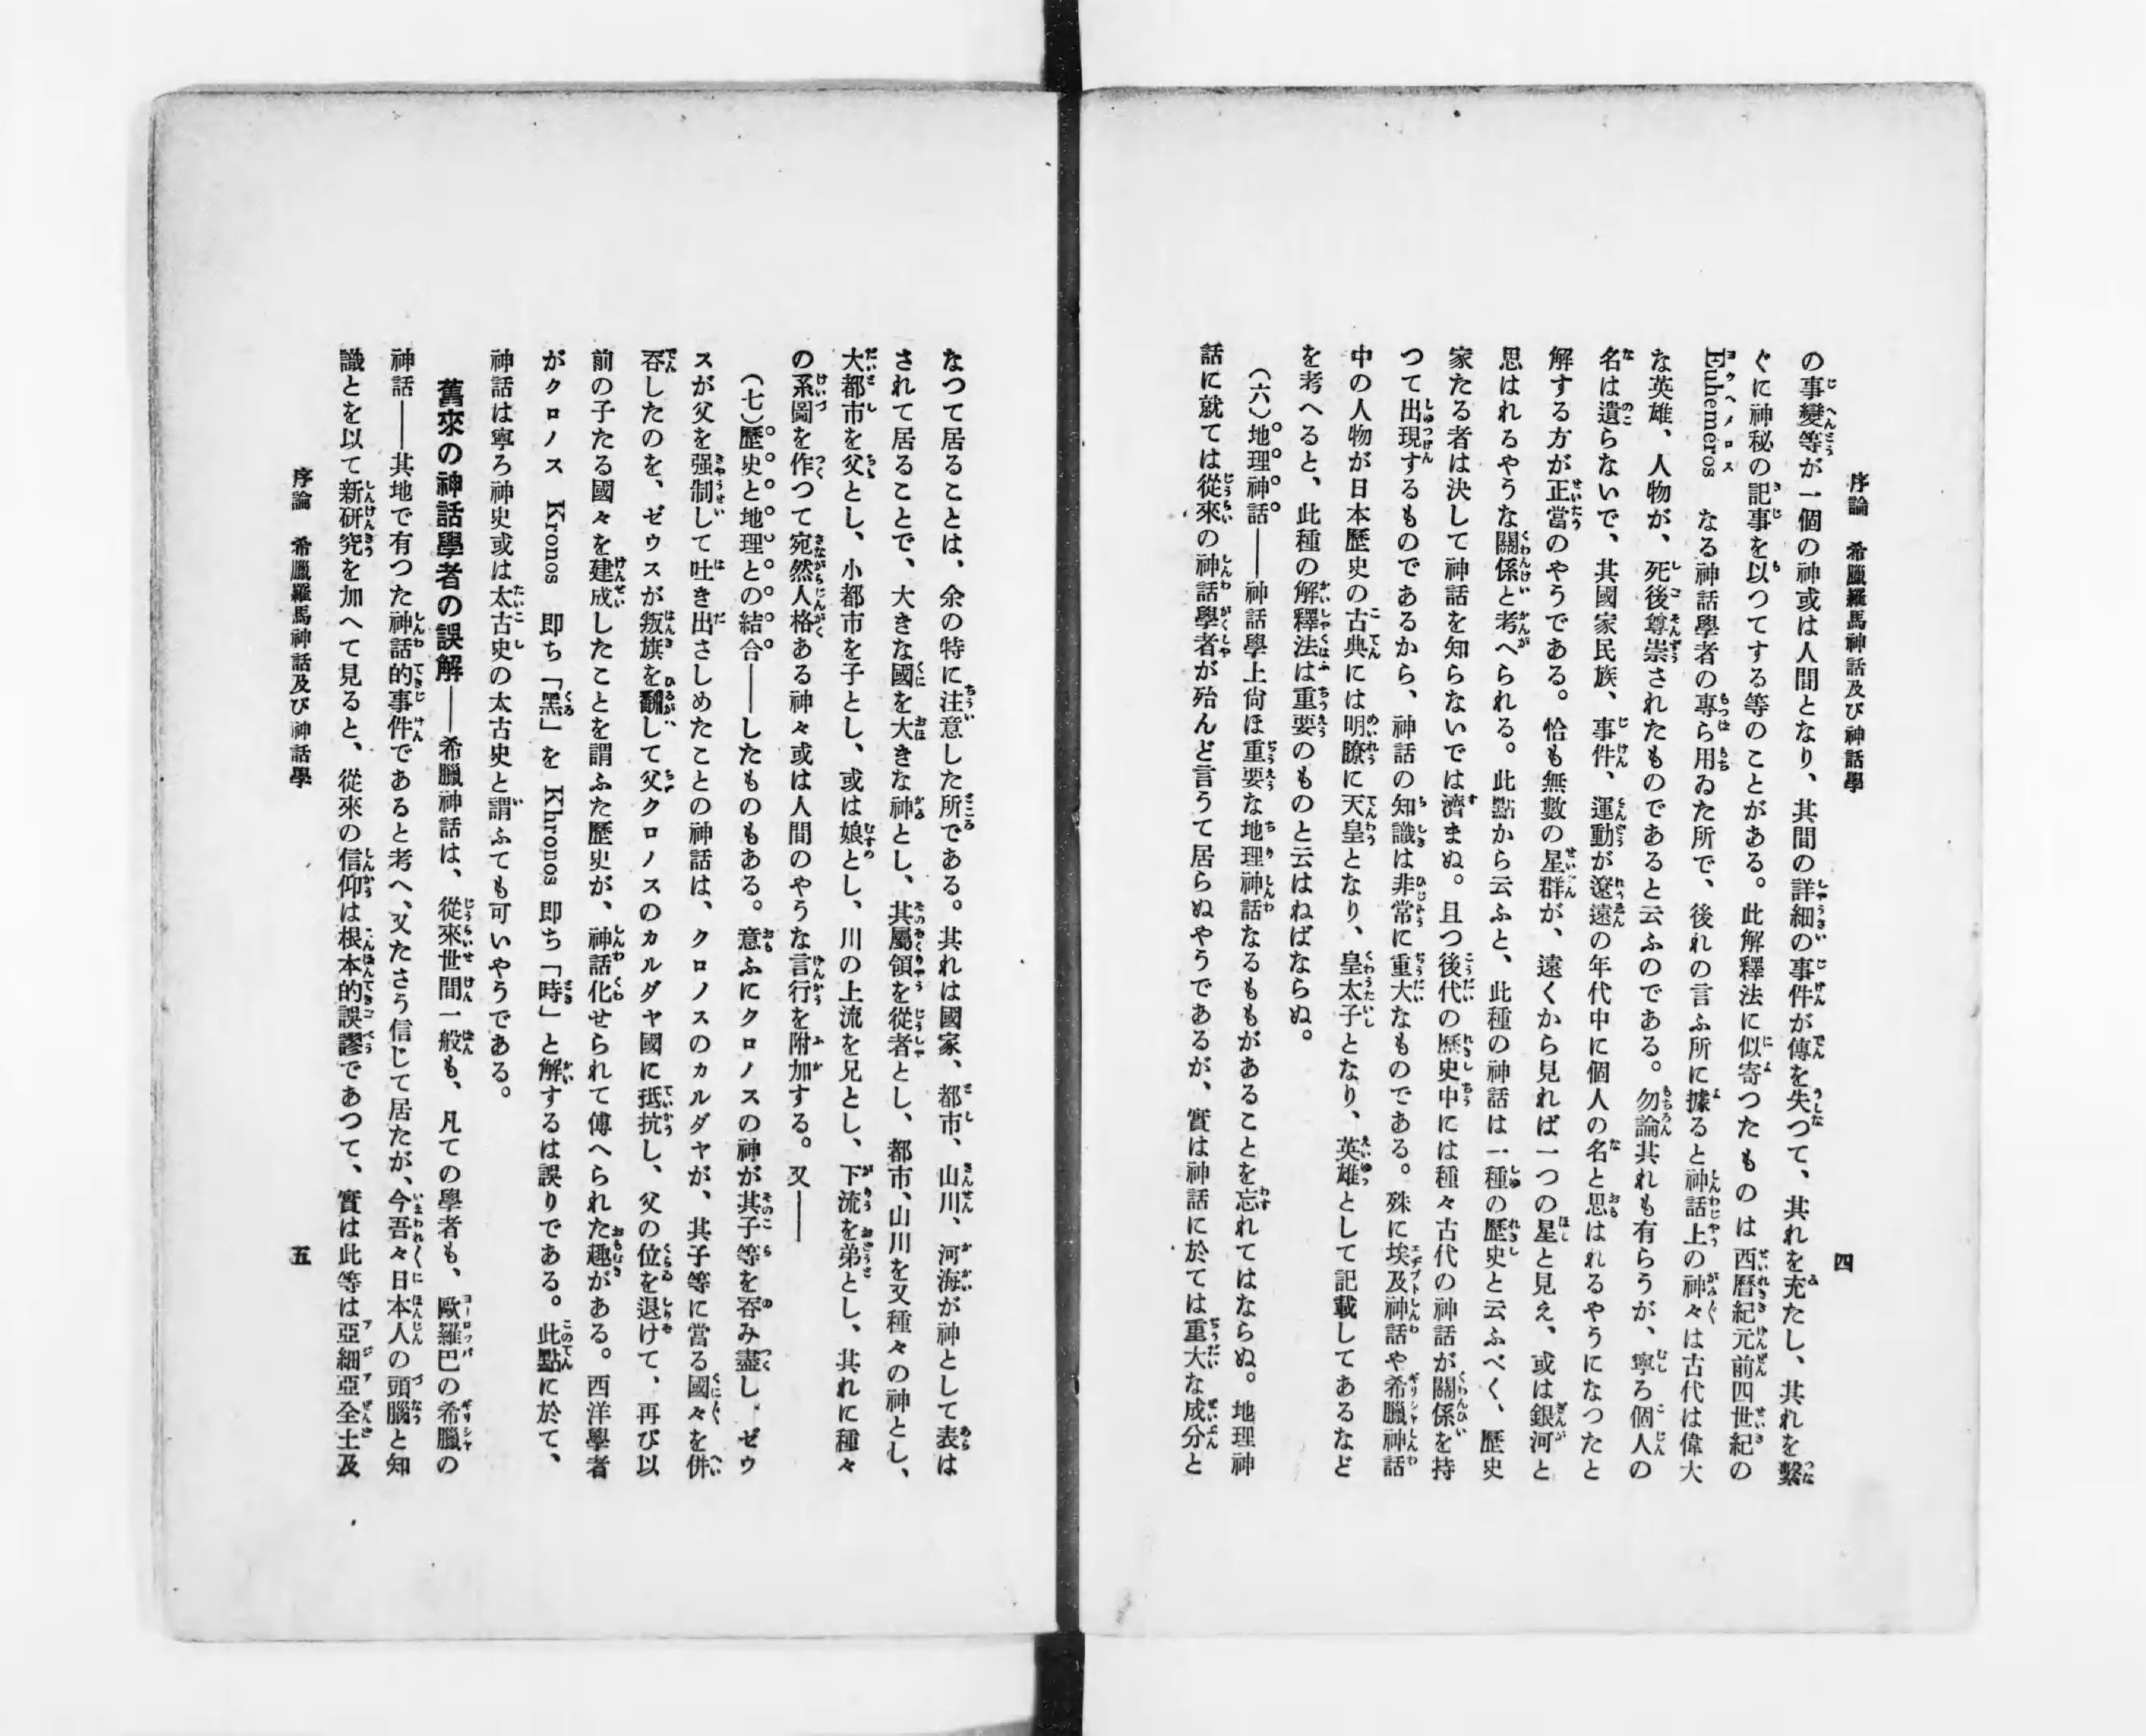 序論　希臘羅馬神話及び神話學
四
の事變等が一個の神或は人間となり、其間の詳細の事件が傳を失つて、其れを充たし、其れを繋
ぐに神秘の記事を以つてする等のことがある。此解釋法に似寄つたものは西曆紀元前四世紀の
Euhemeros なる神話學者の專ら用ゐた所で、後れの言ふ所に據ると神話上の神々は古代は偉大
な英雄、人物が、死後尊崇されたものであると云ふのである。勿論其れも有らうが、寧ろ個人の
名は遺らないで、其國家民族、事件、運動が遼遠の年代中に個人の名と思はれるやうになつたと
解する方が正當のやうである。恰も無數の星群が、遠くから見れば一つの星と見え、或は銀河と
思はれるやうな關係と考へられる。此點から云ふと、此種の神話は一種の歷史と云ふべく、歷史
家たる者は決して神話を知らないでは濟まぬ。且つ後代の歷史中には種々古代の神話が關係を持
つて出現するものであるから、神話の知識は非常に重大なものである。殊に埃及神話や希臘神話
中の人物が日本歷史の古典には明瞭に天皇となり、皇太子となり、英雄として記載してあるなど
を考へると、此種の解釋法は重要のものと云はねばならぬ。
（六）地理神話――神話學上尙ほ重要な地理神話なるももがあることを忘れてはならぬ。地理神
話に就ては從來の神話學者が殆んど言うて居らぬやうであるが、實は神話に於ては重大な成分と
なつて居ることは、余の特に注意した所である。其れは國家、都市、山川、河海が神として表は
されて居ることで、大きな國を大きな神とし、其屬領を從者とし、都市、山川を又種々の神とし、
大都市を父とし、小都市を子とし、或は娘とし、川の上流を兄とし、下流を弟とし、其れに種々
の系圖を作つて宛然人格ある神々或は人間のやうな言行を附加する。又――
（七）歷史と地理との結合――したものもある。意ふにクロノスの神が其子等を呑み盡し、ゼウ
スが父を强制して吐き出さしめたことの神話は、クロノスのカルダヤが、其子等に當る國々を併
呑したのを、ゼウスが叛旗を飜して父クロノスのカルダヤ國に抵抗し、父の位を退けて、再び以
前の子たる國々を建成したことを謂ふた歷史が、神話化せられて傳へられた趣がある。西洋學者
がクロノス Kronos 即ち「黑」を Khronos 即ち「時」と解するは誤りである。此點に於て、
神話は寧ろ神史或は太古史の太古史と謂ふても可いやうである。
舊來の神話學者の誤解――希臘神話は、從來世間一般も、凡ての學者も、歐羅巴の希臘の
神話――其地で有つた神話的事件であると考へ、又たさう信じて居たが、今吾々日本人の頭腦と知
識とを以て新研究を加へて見ると、從來の信仰は根本的誤謬であつて、實は此等は亞細亞全土及
序論　希臘羅馬神話及び神話學
五